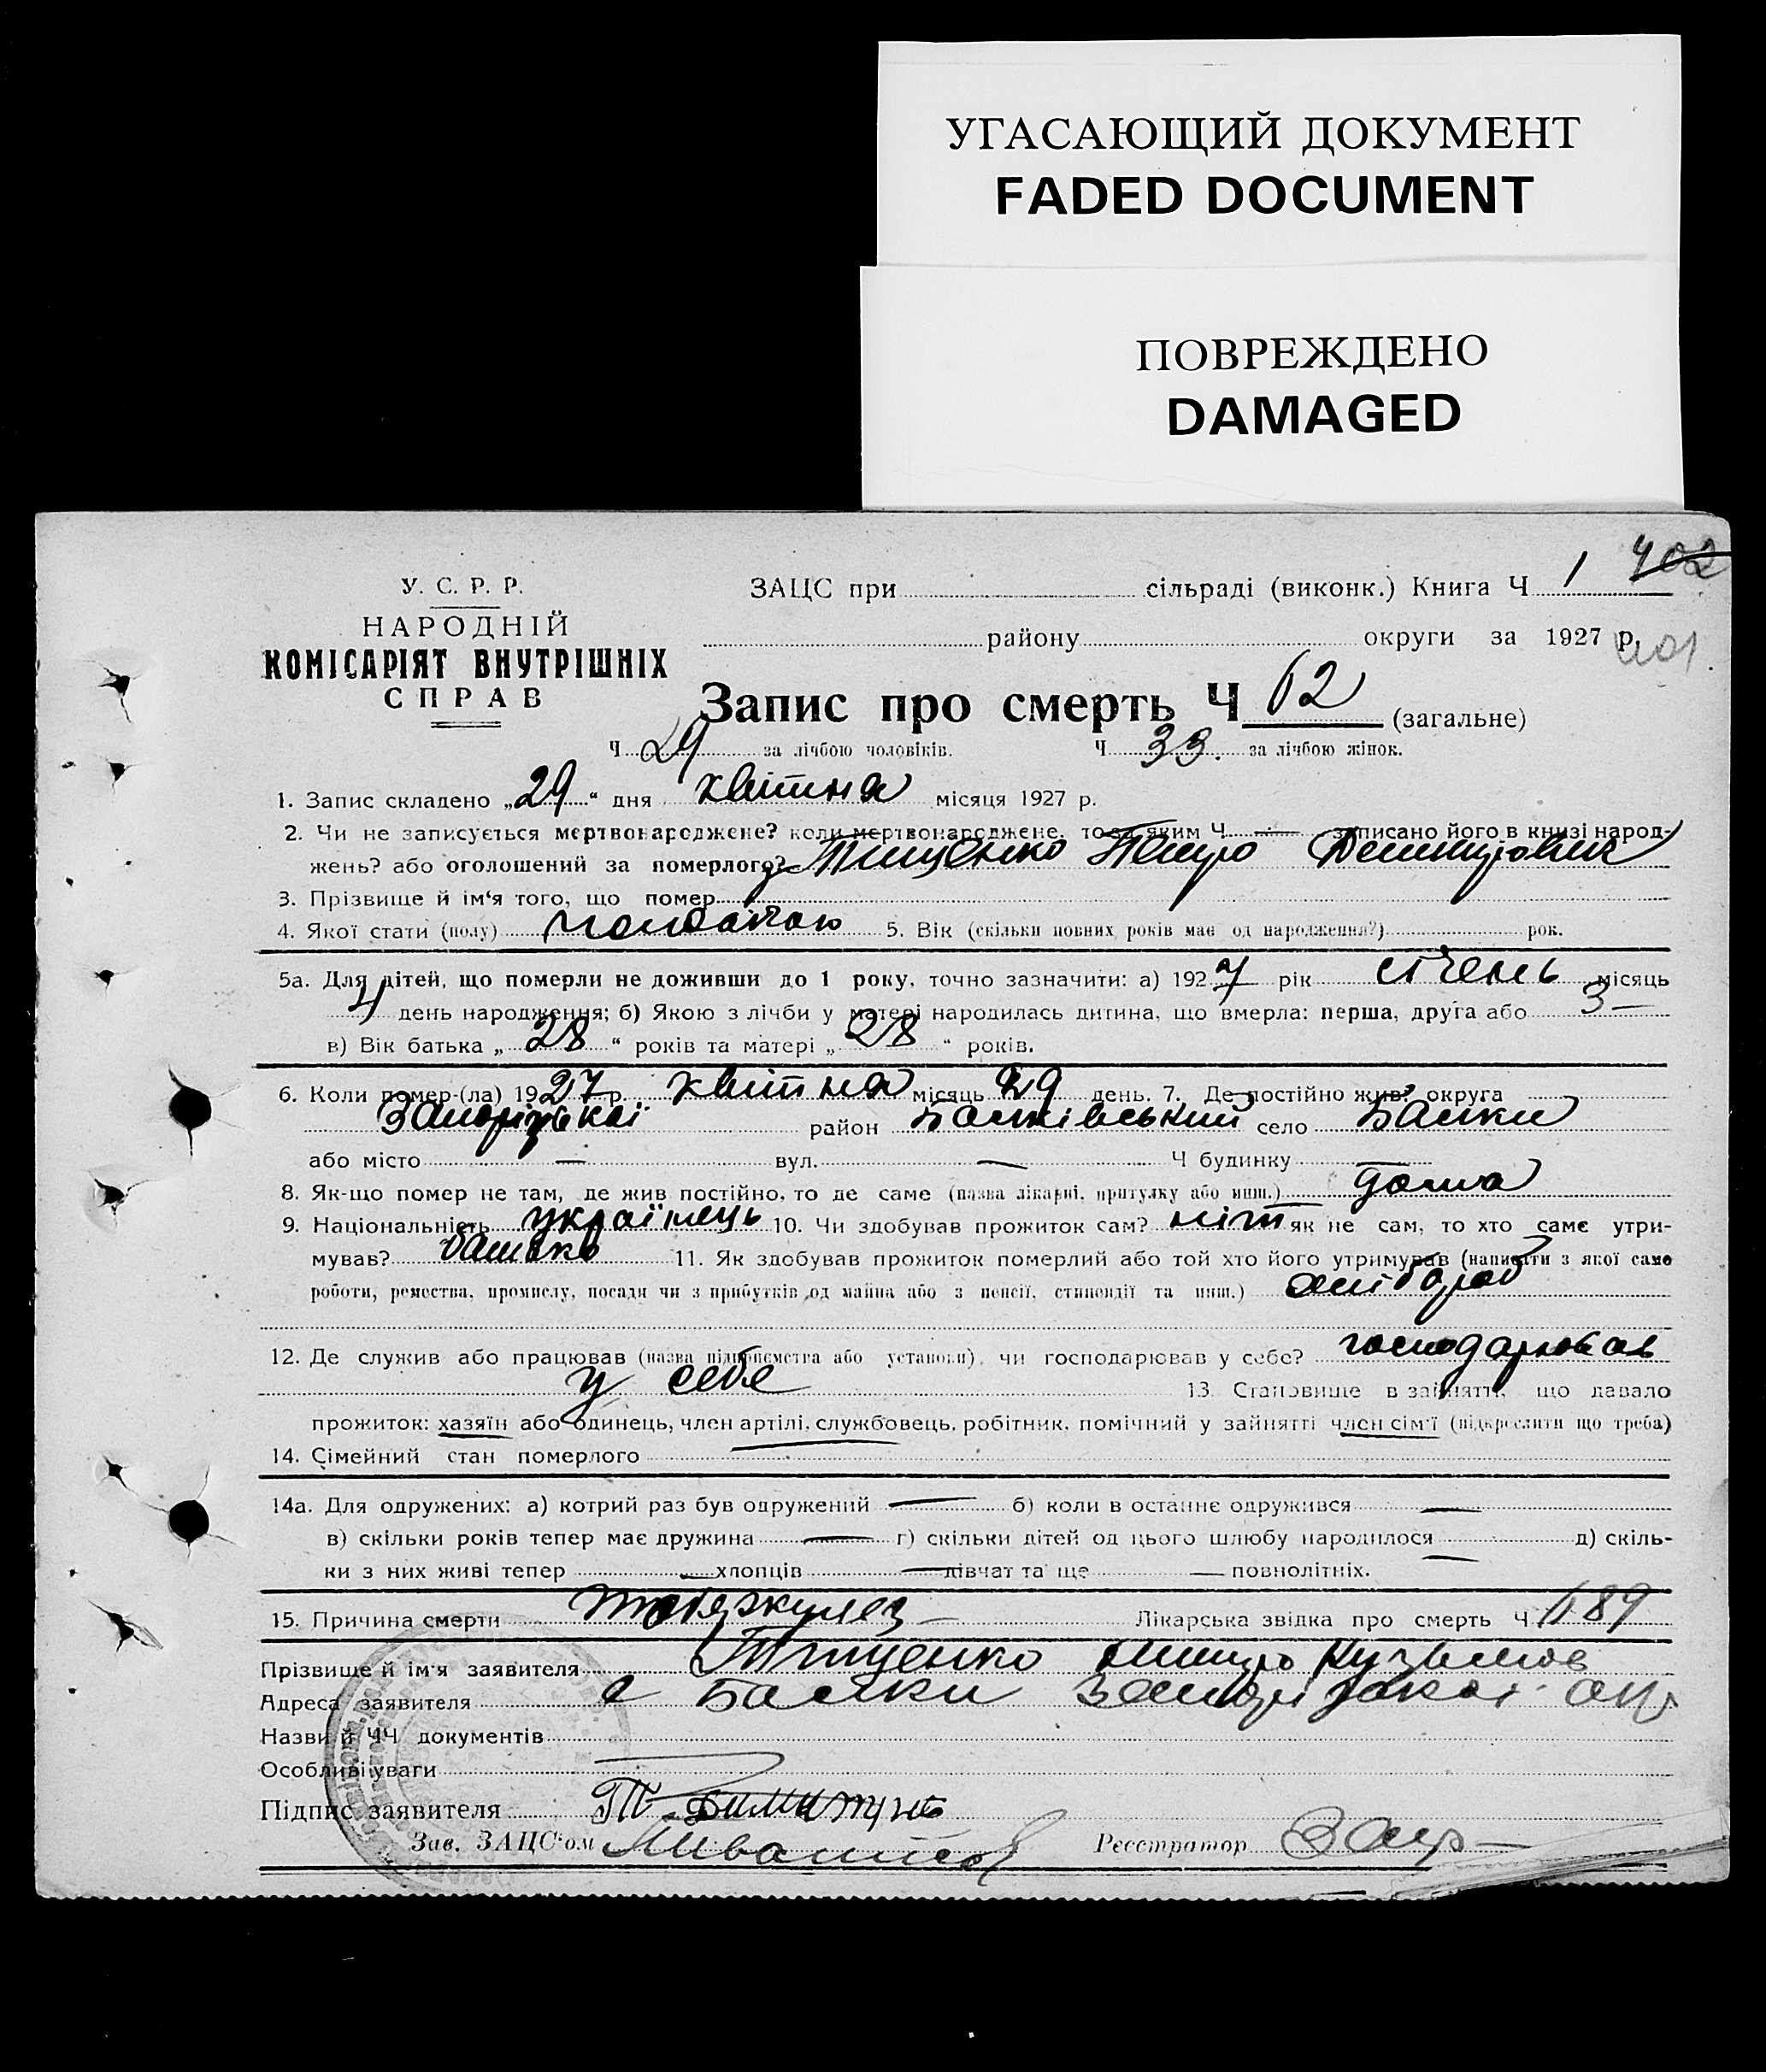 УГАСАЮЩИЙ ДОКУМЕНТ
FADED DOCUMENT
ПОВРЕЖДЕНО
DAMAGED
402
У. С. Р. Р.
НАРОДНІЙ
КОМІСАРІЯТ ВНУТРІШНІХ
СПРАВ
ЗАЦС при сільраді (виконк.) Книга Ч 1
району округи за 1927 р.
401.
Запис про смерть Ч 62 (загальне)
Ч 29 за лічбою чоловіків. Ч 33. за лічбою жінок.
1. Запис складено „29“ дня квітня місяця 1927 р.
2. Чи не записується мертвонароджене? коли мертвонароджене, то за яким Ч — записано його в книзі народ-
жень? або оголошений за померлого? Тищенко Петро
3. Прізвище й ім‘я того, що помер
4. Якої стати (полу) 5. Вік (скільки повних років має од народження?) рок.
5а. Для дітей, що померли не доживши до 1 року, точно зазначити: а) 1927 рік січень місяць
день народження; б) Якою з лічби у матері народилась дитина, що вмерла: перша, друга або 3 —
в) Вік батька „28“ років та матері „28“ років.
6. Коли помер-(ла) 1927 р. квітня місяць 29 день. 7. Де постійно жив? округа
Запорізької район Балківський село Балки
або місто — вул. — Ч будинку —
8. Як-що помер не там, де жив постійно, то де саме (назва лікарні, притулку або инш.) дома
9. Національність українець 10. Чи здобував прожиток сам? ніт як не сам, то хто саме утри-
мував? батько 11. Як здобував прожиток померлий або той хто його утримував (написати з якої саме
роботи, ремества, промислу, посади чи з прибутків од майна або з пенсії, стипендії та инш.) хлібороб
12. Де служив або працював (назва підприємства або установи), чи господарював у себе? господарював
у себе 13. Становище в зайнятті, що давало
прожиток: хазяїн або одинець, член артілі, службовець, робітник, помічний у зайнятті член сім‘ї (підкреслити що треба)
14. Сімейний стан померлого —
14а. Для одружених: а) котрий раз був одружений — б) коли в останнє одружився —
в) скільки років тепер має дружина — г) скільки дітей од цього шлюбу народилося — д) скіль-
ки з них живі тепер — хлопців — дівчат та ще — повнолітніх.
15. Причина смерти туберкулез — Лікарська звідка про смерть Ч 689
Прізвище й ім‘я заявителя Тищенко
Адреса заявителя с Балки Запорізької окр
Назви й ЧЧ документів
Особливі уваги
Підпис заявителя
Зав. ЗАЦС‘ом
Реєстратор